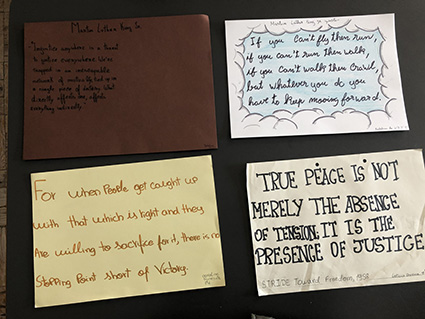 Martin Luther King Jr.
Injustice anywhere is a threat
to justice everywhere. We're
caught in an inescapable
network of mutuality, tied in
a single garment of destiny. What
directly affects one, affects
Everything indirectly.
Martin Luther King Jr.
If you can't fly then run,
if you can't run then walk,
if you can't walk then crawl,
but whatever you do you
have to keep moving forward.
For when People get caught up
with that which is right and they
Are willing to sacrifice for it, there is no
Stopping Point short of Victory.
TRUE PEACE IS NOT
MERELY THE ABSENCE
OF TENSION, IT IS THE
PRESENCE OF JUSTICE
STRIDE Toward Freedom, 1958